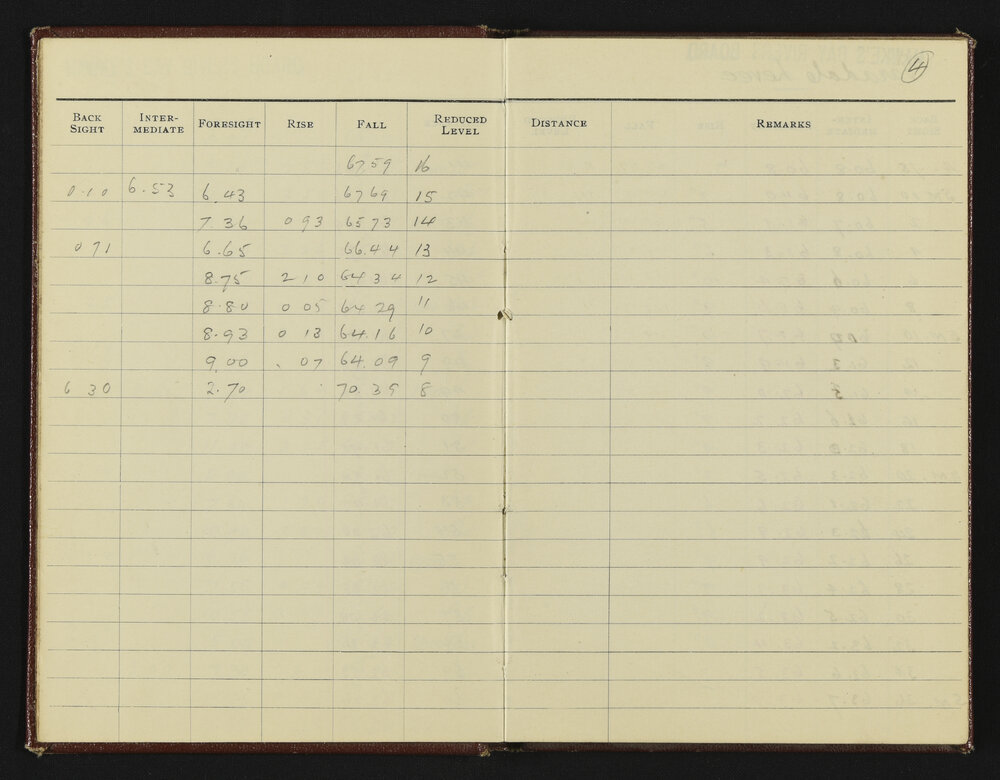 4
BACK SIGHT INTER-MEDIATE FORESIGHT RISE FALL REDUCED LEVEL DISTANCE REMARKS
67 59 16
0.10 6.53 6.43 67 69 15
7.36 0 93 65 73 14
0 71 6.65 66.44 13
8.75 2 10 64 34 12
8.80 0 05 64 29 11
8.93 0 13 64.16 10
9.00 . 07 64.09 9
6 30 2.70 70.39 8